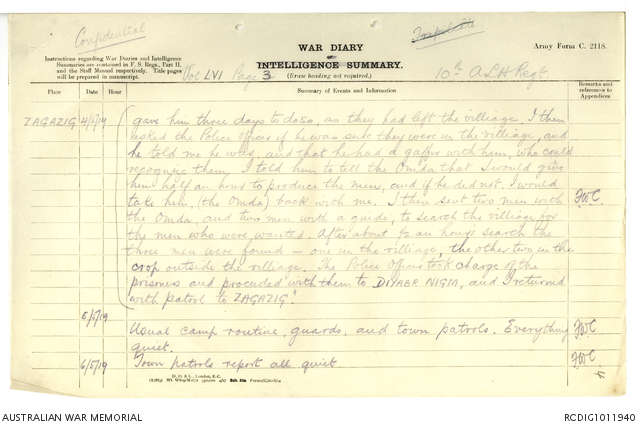 Confidential
WAR DIARY
or
INTELLIGENCE SUMMARY.
(Erase heading not required.)
Army Form C. 2118.
Instructions regarding War Diaries and Intelligence
Summaries are contained in F. S. Regs., Part II.
and the Staff Manual respectively. Title pages
will be prepared in manuscript.
Vol LVI Page 3
10th A L H Regt.
Place Date Hour Summary of Events and Information Remarks and references to Appendices
ZAGAZIG 4/5/19 gave him three days to do so, as they had left the villiage. I then
asked the Police Officer if he was sure they were in the villiage, and
he told me he was, and that he had a gafir with him, who could
recognise them. I told him to tell the Omda that I would give
him half an hour to produce the men, and if he did not, I would
take him, (the Omda) back with me. I then sent two men with
the Omda, and two men with a guide, to search the villiage for
the men who were wanted. After about ½ an hours search the
three men were found – one in the villiage, the other two in the
crop outside the villiage. The Police Officer took charge of the
prisoners and proceeded with them to DIYARB NIGM, and I returned
with patrol to ZAGAZIG."
5/5/19 Usual camp routine, guards, and town patrols. Everything
quiet.
6/5/19 Town patrols report all quiet.
AUSTRALIAN WAR MEMORIAL
RCDIG1011940